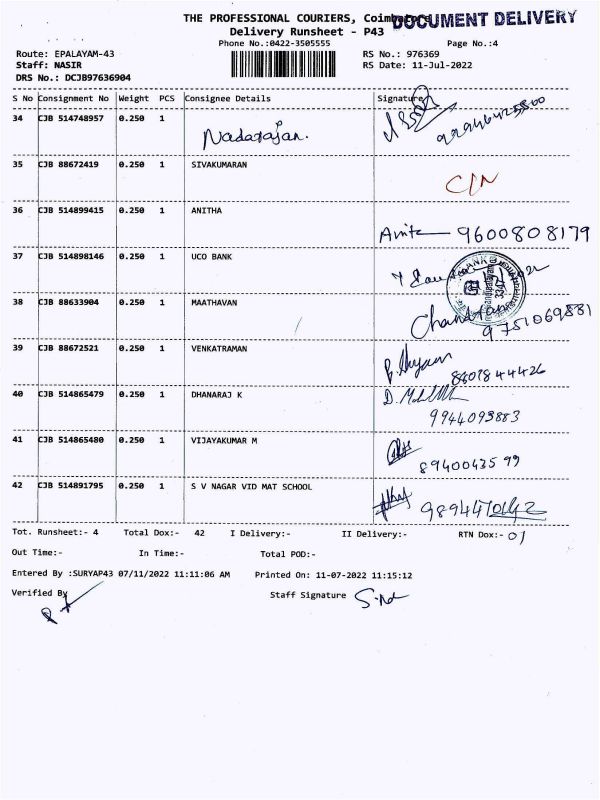 THE PROFESSIONAL COURIERS, Coimbatore
DOCUMENT DELIVERY
Delivery Runsheet - P43
Phone No.:0422-3505555
Page No.:4
Route: EPALAYAM-43
RS No.: 976369
Staff: NASIR
RS Date: 11-Jul-2022
DRS No.: DCJB97636904
S No Consignment No Weight PCS Consignee Details Signature
34 CJB 514748957 0.250 1 Nadarajan.
35 CJB 88672419 0.250 1 SIVAKUMARAN C/N
36 CJB 514899415 0.250 1 ANITHA Anita 9600808179
37 CJB 514898146 0.250 1 UCO BANK
38 CJB 88633904 0.250 1 MAATHAVAN Chandran 9751069881
39 CJB 88672521 0.250 1 VENKATRAMAN 8807844426
40 CJB 514865479 0.250 1 DHANARAJ K 9944093883
41 CJB 514865480 0.250 1 VIJAYAKUMAR M 8940043599
42 CJB 514891795 0.250 1 S V NAGAR VID MAT SCHOOL
Tot. Runsheet:- 4 Total Dox:- 42 I Delivery:- II Delivery:- RTN Dox:- 01
Out Time:- In Time:- Total POD:-
Entered By :SURYAP43 07/11/2022 11:11:06 AM Printed On: 11-07-2022 11:15:12
Verified By Staff Signature